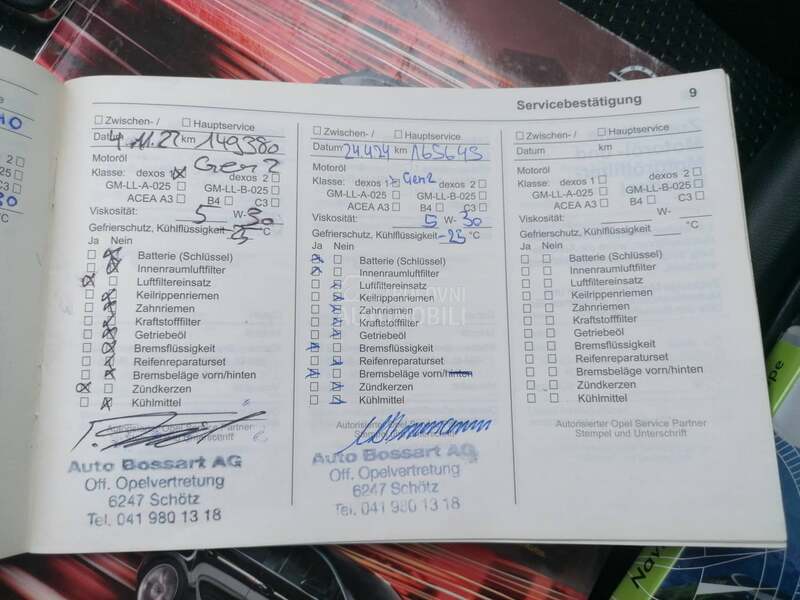 Servicebestätigung 9
Zwischen-/ Hauptservice
Datum 4.11.22 km 149380
Motoröl Gen2
Klasse: dexos 1 dexos 2
GM-LL-A-025 GM-LL-B-025
ACEA A3 B4 C3
Viskosität: 5 W- 30
Gefrierschutz, Kühlflüssigkeit -25 °C
Ja Nein
Batterie (Schlüssel)
Innenraumluftfilter
Luftfiltereinsatz
Keilrippenriemen
Zahnriemen
Kraftstofffilter
Getriebeöl
Bremsflüssigkeit
Reifenreparaturset
Bremsbeläge vorn/hinten
Zündkerzen
Kühlmittel
Auto Bossart AG
Off. Opelvertretung
6247 Schötz
Tel. 041 980 13 18
Zwischen-/ Hauptservice
Datum 24.4.24 km 165643
Motoröl
Klasse: dexos 1 Gen2 dexos 2
GM-LL-A-025 GM-LL-B-025
ACEA A3 B4 C3
Viskosität: 5 W- 30
Gefrierschutz, Kühlflüssigkeit -25 °C
Ja Nein
Batterie (Schlüssel)
Innenraumluftfilter
Luftfiltereinsatz
Keilrippenriemen
Zahnriemen
Kraftstofffilter
Getriebeöl
Bremsflüssigkeit
Reifenreparaturset
Bremsbeläge vorn/hinten
Zündkerzen
Kühlmittel
Auto Bossart AG
Off. Opelvertretung
6247 Schötz
Tel. 041 980 13 18
Zwischen-/ Hauptservice
Datum km
Motoröl
Klasse: dexos 1 dexos 2
GM-LL-A-025 GM-LL-B-025
ACEA A3 B4 C3
Viskosität: W-
Gefrierschutz, Kühlflüssigkeit °C
Ja Nein
Batterie (Schlüssel)
Innenraumluftfilter
Luftfiltereinsatz
Keilrippenriemen
Zahnriemen
Kraftstofffilter
Getriebeöl
Bremsflüssigkeit
Reifenreparaturset
Bremsbeläge vorn/hinten
Zündkerzen
Kühlmittel
Autorisierter Opel Service Partner
Stempel und Unterschrift